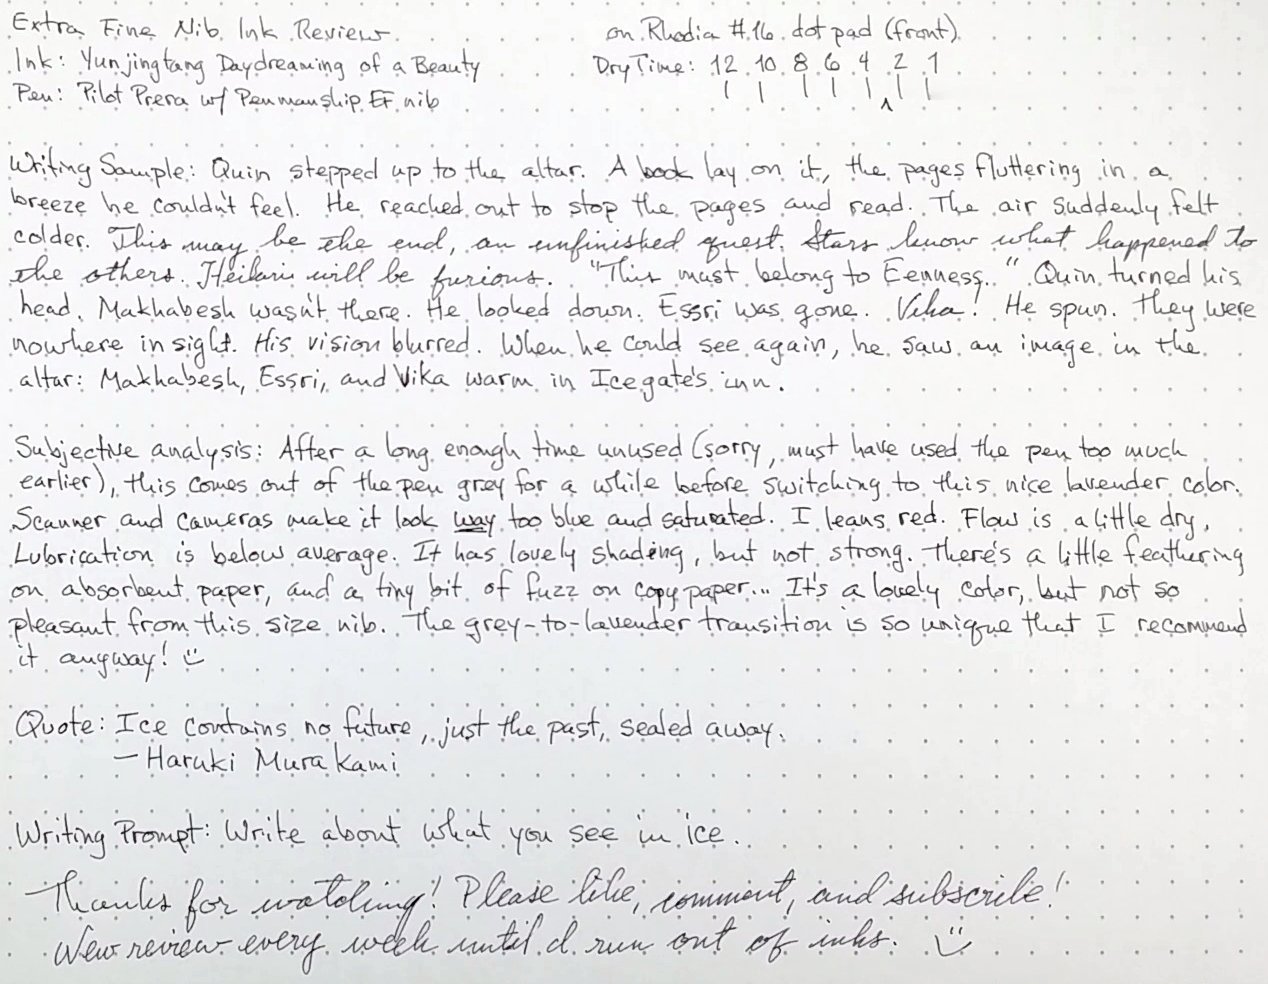 Extra Fine Nib Ink Review
on Rhodia #16 dot pad (front)
Ink: Yunjingtang Daydreaming of a Beauty
Dry Time: 12 10 8 6 4 2 1
Pen: Pilot Prera w/ Penmanship EF nib
Writing Sample: Quin stepped up to the altar. A book lay on it, the pages fluttering in a
breeze he couldn't feel. He reached out to stop the pages and read. The air suddenly felt
colder. This may be the end, an unfinished quest. Stars know what happened to
the others. Heilari will be furious. "This must belong to Eenness." Quin turned his
head. Makhabesh wasn't there. He looked down. Essri was gone. Vika! He spun. They were
nowhere in sight. His vision blurred. When he could see again, he saw an image in the
altar: Makhabesh, Essri, and Vika warm in Icegate's inn.
Subjective analysis: After a long enough time unused (sorry, must have used the pen too much
earlier), this comes out of the pen grey for a while before switching to this nice lavender color.
Scanner and cameras make it look way too blue and saturated. I leans red. Flow is a little dry,
Lubrication is below average. It has lovely shading, but not strong. There's a little feathering
on absorbent paper, and a tiny bit of fuzz on copy paper... It's a lovely color, but not so
pleasant from this size nib. The grey-to-lavender transition is so unique that I recommend
it anyway!
Quote: Ice contains no future, just the past, sealed away.
—Haruki Murakami
Writing Prompt: Write about what you see in ice.
Thanks for watching! Please like, comment, and subscribe!
New review every week until I run out of inks.